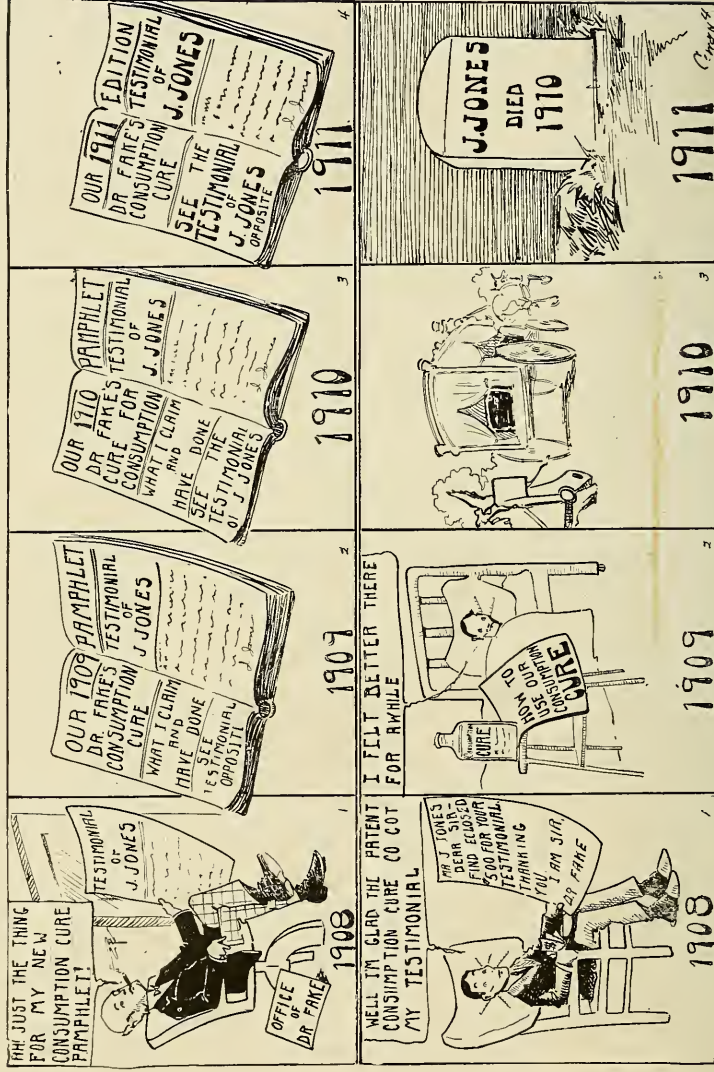 AH! JUST THE THING
FOR MY NEW
CONSUMPTION CURE
PAMPHLET!
TESTIMONIAL
OF
J. JONES
OFFICE
OF
DR FAKE
1908
1
OUR 1909 PAMPHLET
DR. FAKE'S
CONSUMPTION
CURE
WHAT I CLAIM
AND
HAVE DONE
SEE
TESTIMONIAL
OPPOSITE
TESTIMONIAL
OF
J JONES
J Jones
1909
2
OUR 1910 PAMPHLET
DR FAKE'S
CURE FOR
CONSUMPTION
WHAT I CLAIM
AND
HAVE DONE
SEE THE
TESTIMONIAL
OF J JONES
TESTIMONIAL
OF
J. JONES
J Jones
1910
3
OUR 1911 EDITION
DR FAKE'S
CONSUMPTION
CURE
SEE THE
TESTIMONIAL
OF
J. JONES
OPPOSITE
TESTIMONIAL
OF
J. JONES
J Jones
1911
4
WELL I'M GLAD THE PATENT
CONSUMPTION CURE CO GOT
MY TESTIMONIAL
MR J JONES
DEAR SIR-
FIND ECLOSED
$500 FOR YOUR
TESTIMONIAL.
THANKING
YOU
I AM SIR,
DR FAKE
1908
1
I FELT BETTER THERE
FOR AWHILE
CONSUMPTION
CURE
HOW TO
USE OUR
CONSUMPTION
CURE
1909
2
1910
3
J. JONES
DIED
1910
1911
4